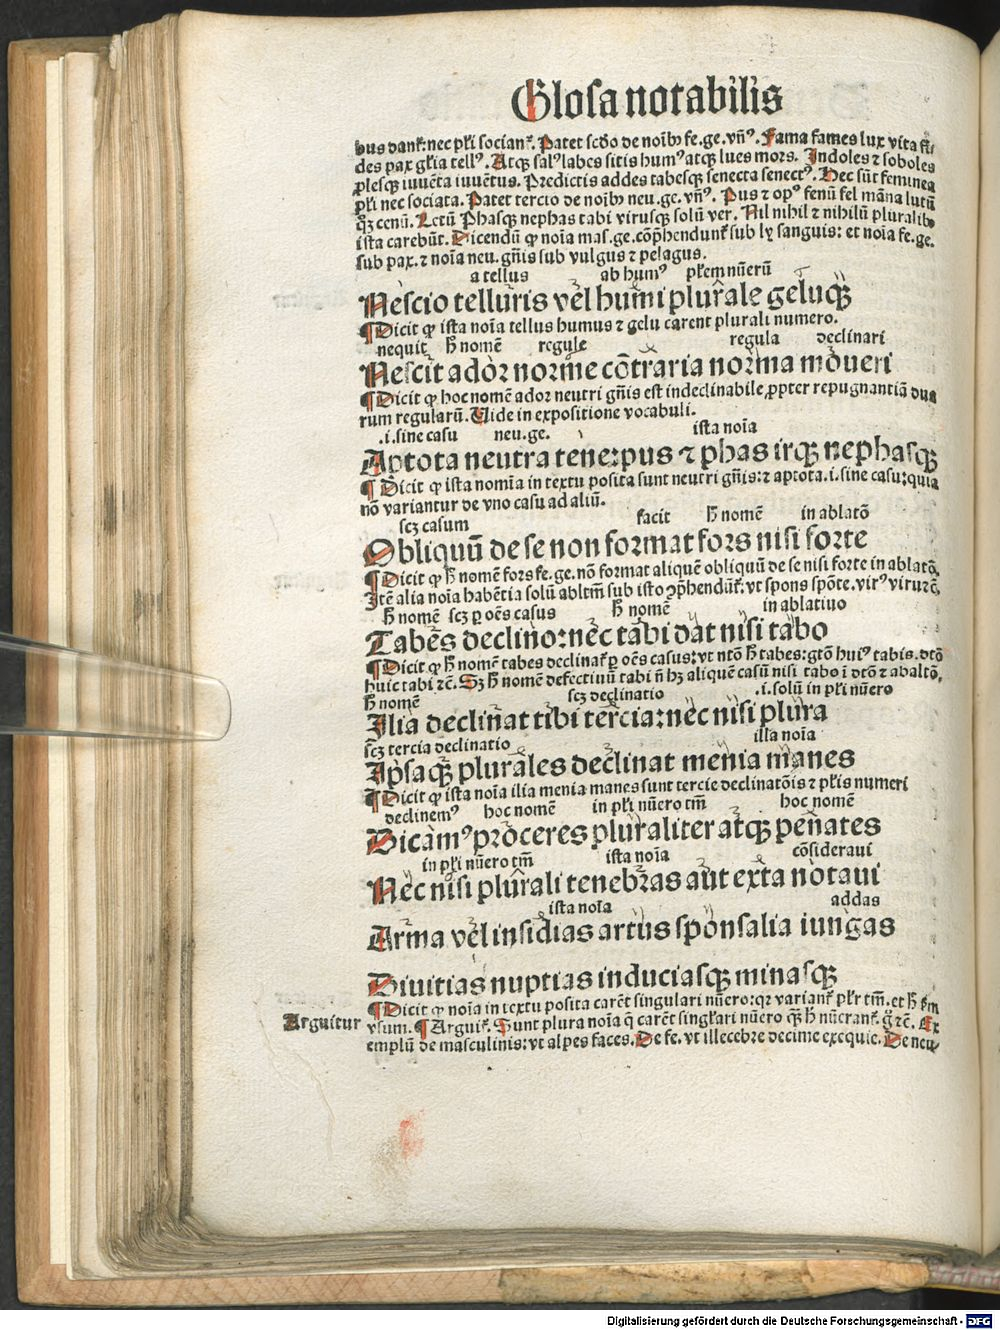 Glosa notabilis
bus dant᷑: nec pl̄i socian᷑. Patet scd̄o de noīb᷒ fe. ge. vn̄ꝰ. Fama fames lux vita fi
des pax gl̄ia tellꝰ. Atqꝫ salꝰ labes sitis humꝰ atqꝫ lues mors. Indoles ⁊ soboles
ꝓlesqꝫ iuuēta iuuētus. Predictis addes tabesqꝫ senecta senectꝰ. Hec sūt feminea
pl̄i nec sociata. Patet tercio de noīb᷒ neu. ge. vn̄ꝰ. Pus ⁊ opꝰ fenū fel māna lutū
qꝫ cenū. Letū Phasqꝫ nephas tabi virusqꝫ solū ver. Nil nihil ⁊ nihilū pluralib᷒
ista carebūt. Dicendū ꝙ noīa mas. ge. cōp̄hendunt᷑ sub ly sanguis: et noīa fe. ge.
sub pax. ⁊ noīa neu. gn̄is sub vulgus ⁊ pelagus.
a tellus ab humꝰ pl̄em nūerū
Nescio telluris vel humi plurale geluqꝫ
¶ Dicit ꝙ ista noīa tellus humus ⁊ gelu carent plurali numero.
nequit h̄ nomē regule regula declinari
Nescit ador norme cōtraria norma moueri
¶ Dicit ꝙ hoc nomē ador neutri gn̄is est indeclinabile ꝓpter repugnantiā dua
rum regularū. Vide in expositione vocabuli.
.i. sine casu neu. ge. ista noīa
Aptota neutra tene: pus ⁊ phas irqꝫ nephasqꝫ
¶ Dicit ꝙ ista nomīa in textu posita sunt neutri gn̄is: ⁊ aptota .i. sine casu: quia
nō variantur de vno casu ad aliū.
scꝫ casum facit h̄ nomē in ablatō
Obliquū de se non format fors nisi forte
¶ Dicit ꝙ h̄ nomē fors fe. ge. nō format aliquē obliquū de se nisi forte in ablatō.
Itē alia noīa habētia solū abltm̄ sub isto ꝯp̄hendūt᷑. vt spons spōte. virꝰ viru ⁊c̄.
h̄ nomē scꝫ ꝑ oēs casus h̄ nomē in ablatiuo
Tabes declino: nec tabi dat nisi tabo
¶ Dicit ꝙ h̄ nomē tabes declinat᷑ ꝑ oēs casus: vt ntō h̄ tabes: gtō huiꝰ tabis. dtō
huic tabi ⁊c̄. Sꝫ h̄ nomē defectiuū tabi n̄ hꝫ aliquē casū nisi tabo ī dtō ⁊ abaltō.
h̄ nomē scꝫ declinatio .i. solū in pl̄i nūero
Ilia declinat tibi tercia: nec nisi plura
scꝫ tercia declinatio illa noīa
Ipsaqꝫ plurales declinat menia manes
¶ Dicit ꝙ ista noīa ilia menia manes sunt tercie declinatōis ⁊ pl̄is numeri
declinemꝰ hoc nomē in pl̄i nūero tm̄ hoc nomē
Dicamꝰ proceres pluraliter atqꝫ penates
in pl̄i nūero tm̄ ista noīa cōsideraui
Nec nisi plurali tenebras aut exta notaui
ista noīa addas
Arma vel insidias artus sponsalia iungas
Diuitias nuptias induciasqꝫ minasqꝫ
¶ Dicit ꝙ noīa in textu posita carēt singulari nūero: qꝛ variant᷑ pl᷑r tm̄. et h̄ s̄m
Arguitur
vsum. ¶ Arguit᷑. Sunt plura noīa q̄ carēt singl̄ari nūero qꝫ h̄ nūerant᷑. g̊ ⁊c̄. Ex
emplū de masculinis: vt alpes faces. De fe. vt illecebre decime exequie. De neu
Digitalisierung gefördert durch die Deutsche Forschungsgemeinschaft - DFG